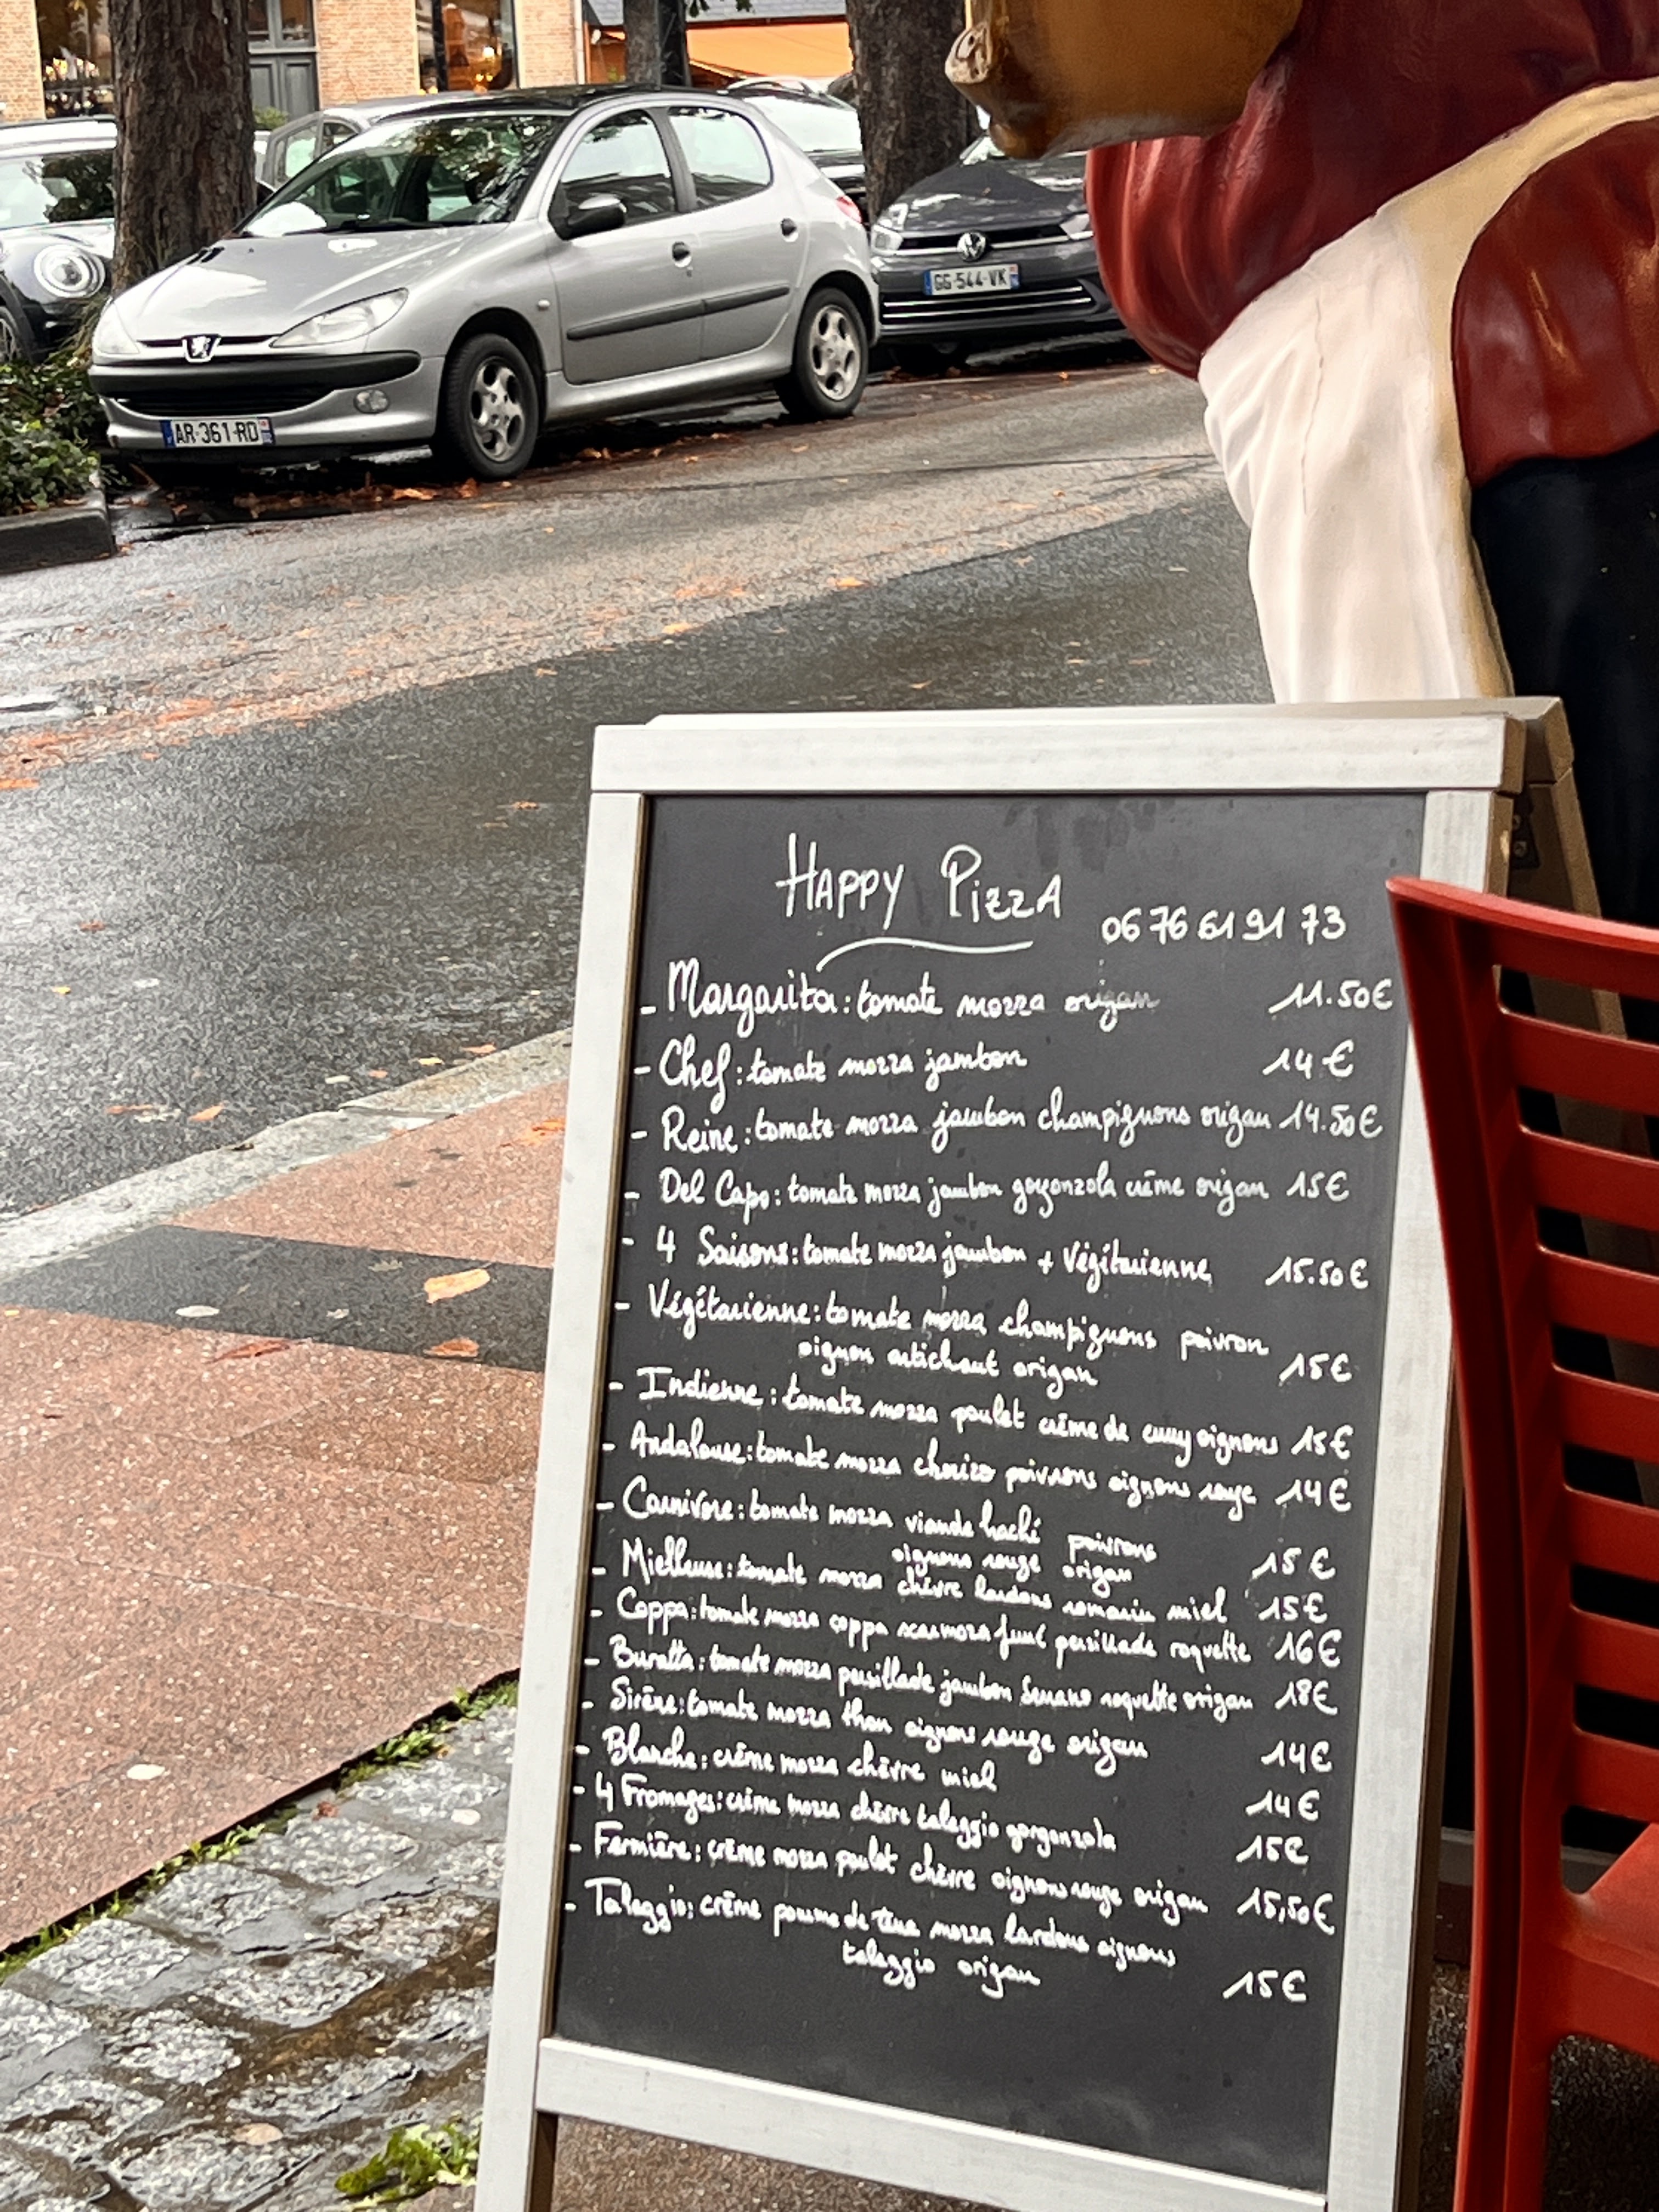 AR-361-RD
GG-544-VK
HAPPY PizzA
06 76 61 91 73
- Margarita: tomate mozza origan 11.50€
- Chef: tomate mozza jambon 14€
- Reine: tomate mozza jambon champignons origan 14.50€
- Del Capo: tomate mozza jambon gorgonzola crème origan 15€
- 4 Saisons: tomate mozza jambon + Végétarienne 15.50€
- Végétarienne: tomate mozza champignons poivron
oignon artichaut origan 15€
- Indienne: tomate mozza poulet crème de curry oignons 15€
- Andalouse: tomate mozza chorizo poivrons oignons rouge 14€
- Carnivore: tomate mozza viande haché poivrons
oignons rouge origan 15€
- Mielleuse: tomate mozza chèvre lardons romarin miel 15€
- Coppa: tomate mozza coppa scarmoza fumé persillade roquette 16€
- Buratta: tomate mozza persillade jambon Serrano roquette origan 18€
- Sirène: tomate mozza thon oignons rouge origan 14€
- Blanche: crème mozza chèvre miel 14€
- 4 Fromages: crème mozza chèvre taleggio gorgonzola 15€
- Fermière: crème mozza poulet chèvre oignons rouge origan 15,50€
- Taleggio: crème pomme de terre mozza lardons oignons
taleggio origan 15€